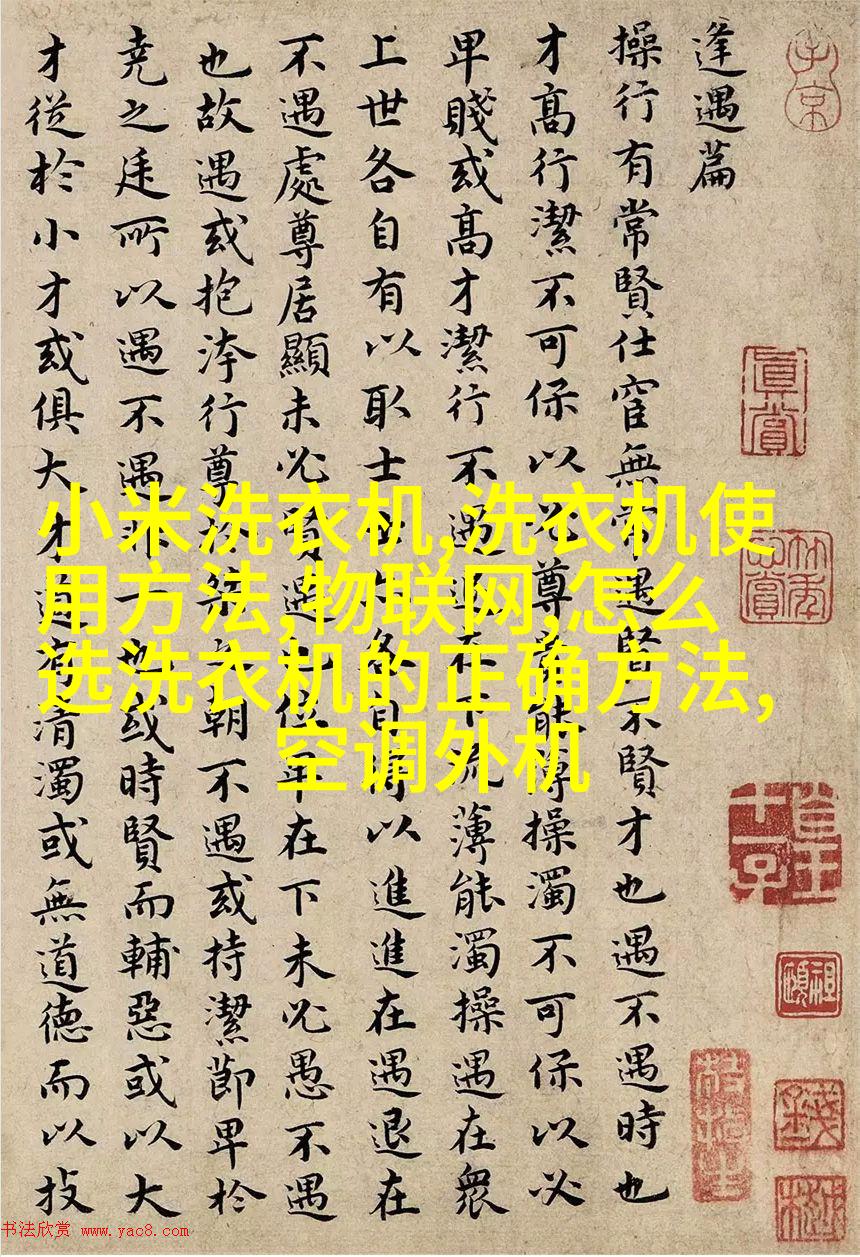 逢遇篇
操行有常賢仕宦無常遇賢不賢才也遇不遇時也
才高行潔不可保以必尊貴能薄操濁不可保以必
卑賤或高才潔行不遇退在下流薄能濁操遇在衆
上世各自有以取士士亦各自得以進進在遇退在
不遇處尊居顯未必賢遇也位卑在下未必愚不遇
也故遇或抱洿行尊於桀之朝不遇或持潔節卑於
堯之廷所以遇不遇非一也或時賢而輔惡或以大
才從於小才或俱大才道有清濁或無道德而以技
小米洗衣机,洗衣机使
用方法,物联网,怎么
选洗衣机的正确方法,
空调外机
書法欣赏 www.yac8.com